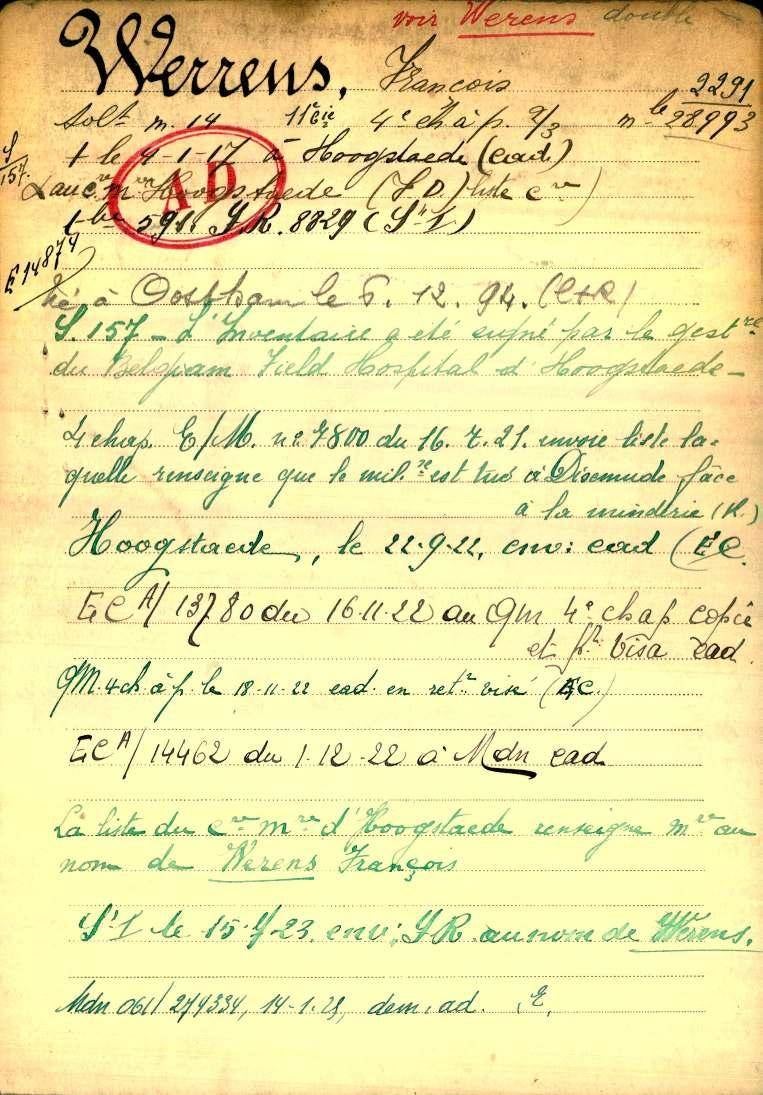 voir Werens double
Werrens, François
2291
solt m. 14 11e Cie 4e ch à p. 2/3 mle 28993
S/157
† le 4-1-17 à Hoogstaede (ead)
AD
L au cre mre Hoogstaede (S.D.) liste cre)
tbe 591. S.R. 8829 (St I)
E 14874
né à Oostham le 6. 12. 94. (C+R)
S. 157 - L'Inventaire a été signé par le gestre
du Belgium Field Hospital d'Hoogstaede -
4 chap. E/M. no 7800 du 16. 7. 21. envoie liste la-
quelle renseigne que le mil.re est tué à Dixmude face
à la minoterie (R.)
Hoogstaede, le 22-9-22, env: ead (EC.
ECA/13780 du 16-11-22 au QM 4e chap copie
et pr visa ead
QM. 4 ch à p. le 18-11-22 ead. en retr visé (EC.)
ECA/14462 du 1-12-22 à Mdn ead
La liste du cre mre d'Hoogstaede renseigne mre au
nom de Werens François
St I le 15-7-23. env: SR au nom de Werens.
Mdn 061/274334, 14-1-25, dem. ad. E.